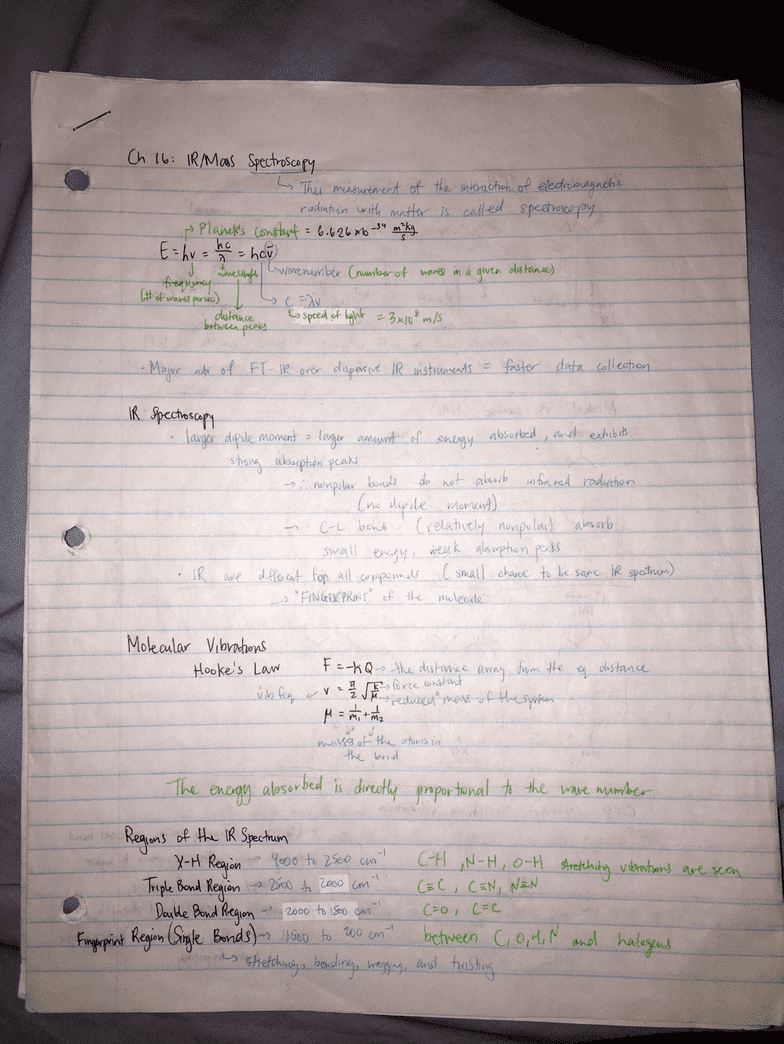 Ch 16: IR/Mass Spectroscopy
↳ This measurement of the interaction of electromagnetic
radiation with matter is called spectroscopy
→ Planck's constant = 6.626 x10⁻³⁴ m²kg/s
E = hv = hc/λ = hcv̄
wavelength
↳ wavenumber (number of waves in a given distance)
frequency
(# of waves per sec)
↳ c = λv
distance
between peaks
↳ speed of light = 3x10⁸ m/s
· Major adv of FT-IR over dispersive IR instruments = faster data collection
IR Spectroscopy
· larger dipole moment = larger amount of energy absorbed, and exhibits
strong absorption peaks
→ ∴ nonpolar bonds do not absorb infrared radiation
(no dipole moment)
→ bonds (relatively nonpolar) absorb
small energy, weak absorption peaks
· IR are different for all compounds (small chance to be same IR spectrum)
→ "FINGERPRINT" of the molecule
Molecular Vibrations
Hooke's Law F = -kQ → the distance array from the eq distance
vib feq ← v = π/2 √k/μ → force constant
→ reduced mass of the system
μ = 1/m₁ + 1/m₂
mass of the atoms in
the bond
The energy absorbed is directly proportional to the wave number
Regions of the IR Spectrum
X-H Region → 4000 to 2500 cm⁻¹ C-H, N-H, O-H stretching vibrations are seen
Triple Bond Region → 2500 to 2000 cm⁻¹ C≡C, C≡N, N≡N
Double Bond Region → 2000 to 1500 cm⁻¹ C=O, C=C
Fingerprint Region (Single Bonds) → 1500 to 200 cm⁻¹ between C, O, H, N and halogens
↳ stretching, bending, wagging, and twisting